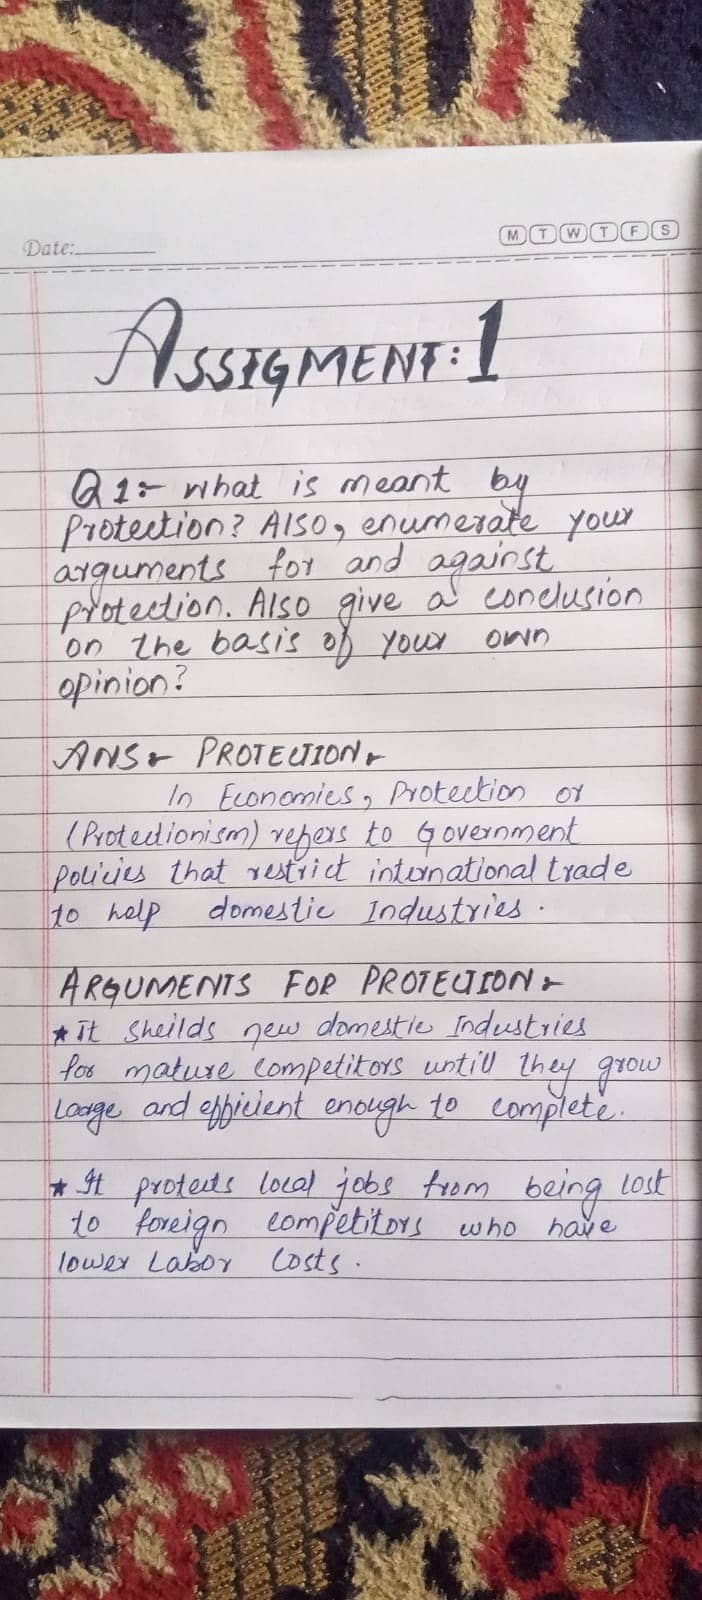 Date:
M T W T F S
ASSIGMENT: 1
Q1:- What is meant by
Protection? Also, enumerate your
arguments for and against
protection. Also give a conclusion
on the basis of your own
opinion?
ANS:- PROTECTION:-
In Economics, Protection or
(Protectionism) refers to Government
policies that restrict international trade
to help domestic Industries.
ARGUMENTS FOR PROTECTION:-
★ It sheilds new domestic Industries
for mature competitors untill they grow
large and efficient enough to complete.
★ It protects local jobs from being lost
to foreign competitors who have
lower Labor Costs.